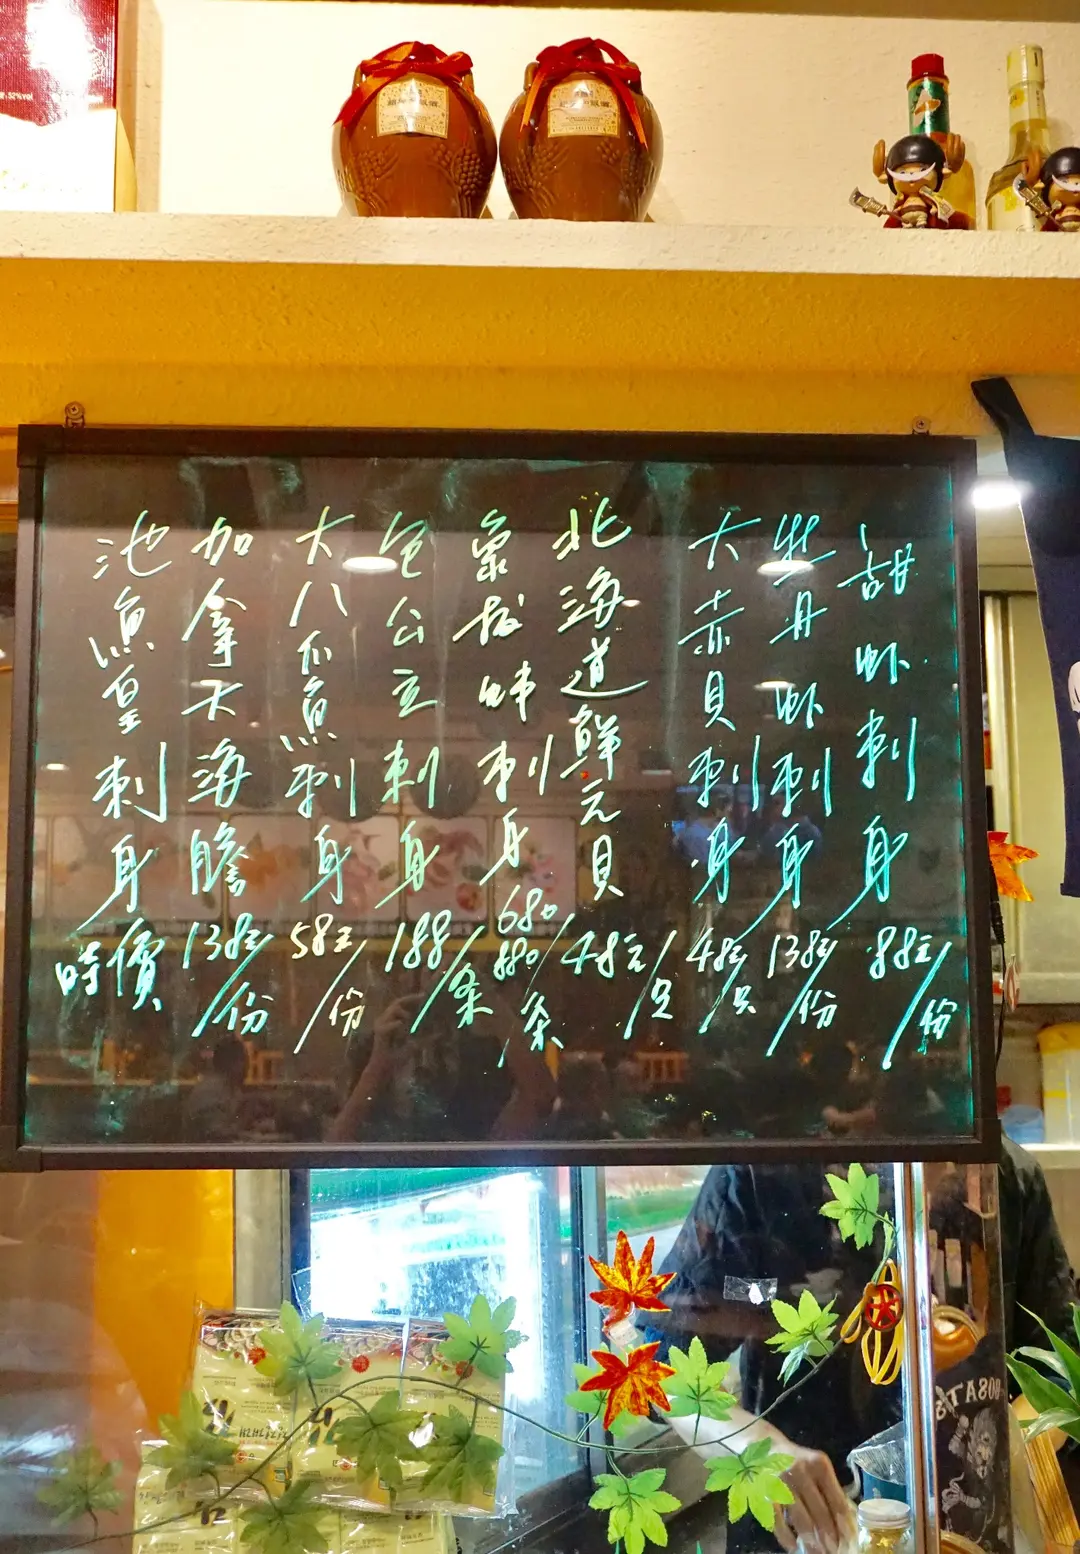 甜虾刺身88元/份
牡丹虾刺身138元/份
大赤貝刺身48元/只
北海道鲜元貝48元/只
象拔蚌刺身680/880/条
包公立刺身188/条
大八爪魚刺身58元/份
加拿大海膽138元/份
池魚皇刺身時價